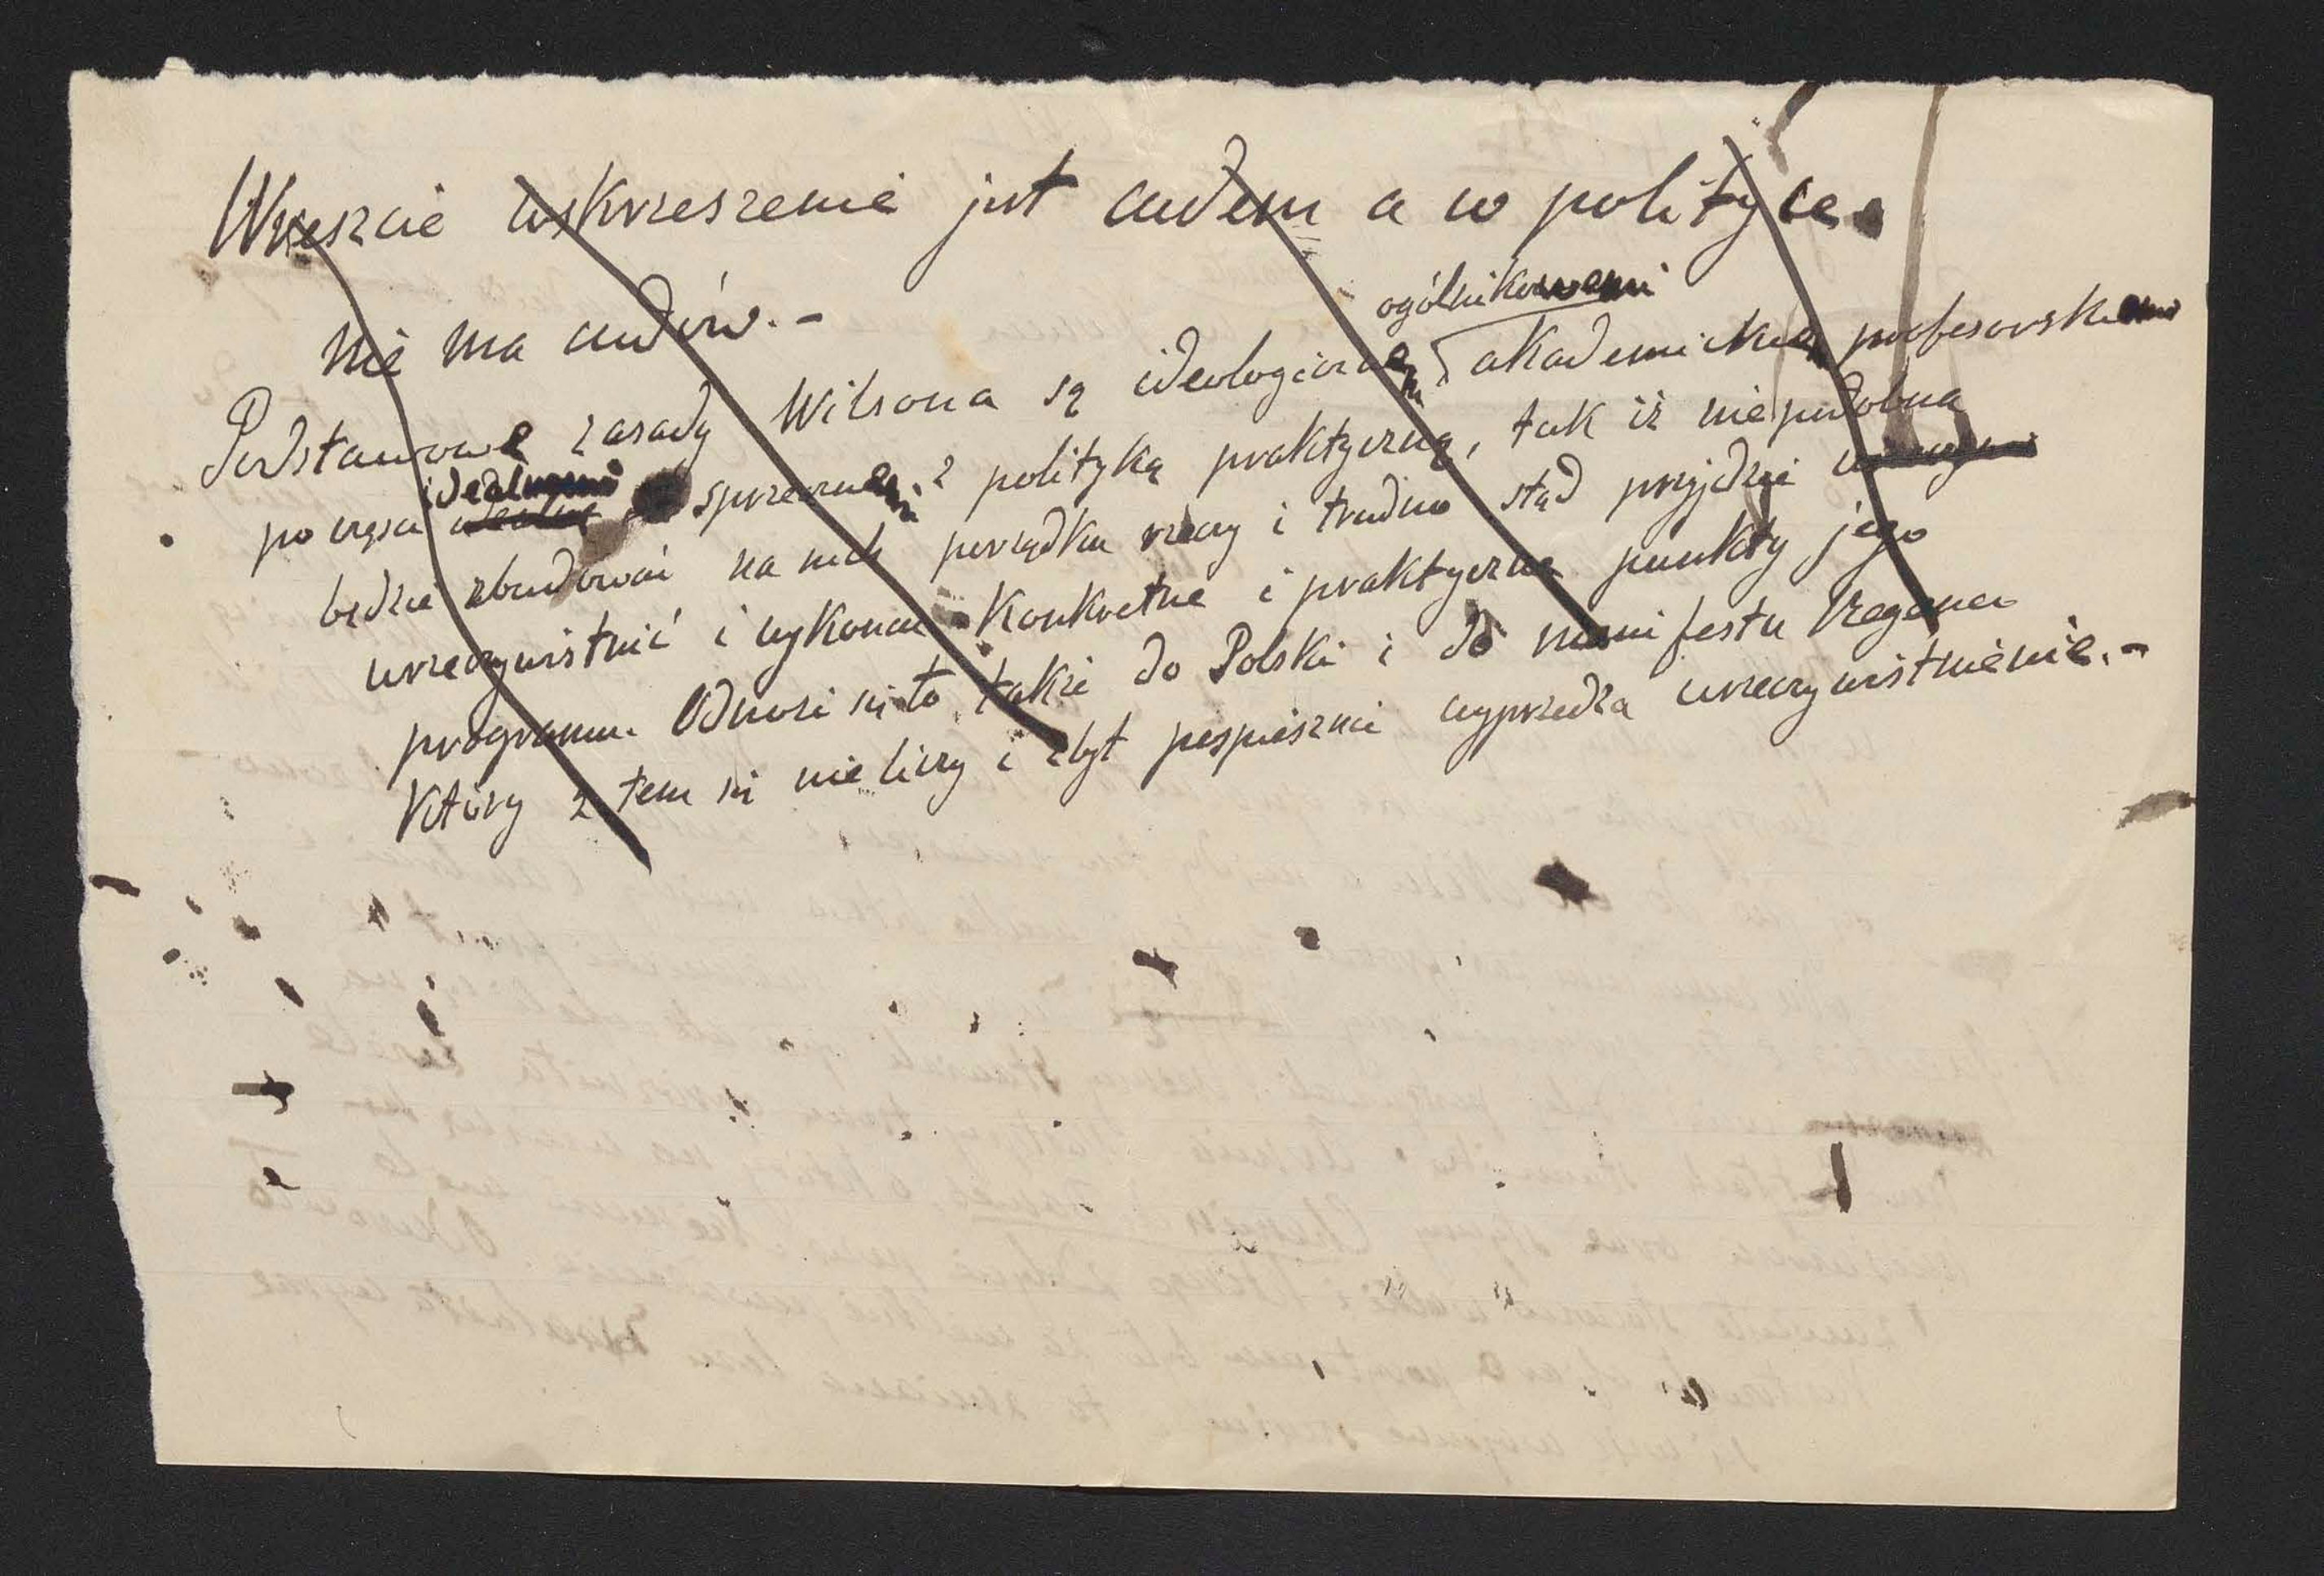 Wreszcie wskrzeszenie jest cudem a w polityce
nie ma cudów. -
ogólnikowemi
Podstawowe zasady Wilsona są ideologicznemi akademickiemi profesorskiemi
idealnemi
po części sprzecznemi z polityką praktyczną, tak iż niepodobna
będzie zbudować na nich porządku rzeczy i trudno stąd przyjdzie
urzeczywistnić i wykonać konkretne i praktyczne punkty jego
programu. Odnosi się to także do Polski i do manifestu
który z tem się nie liczy i zbyt pospiesznie wyprzedza urzeczywistnienie. -